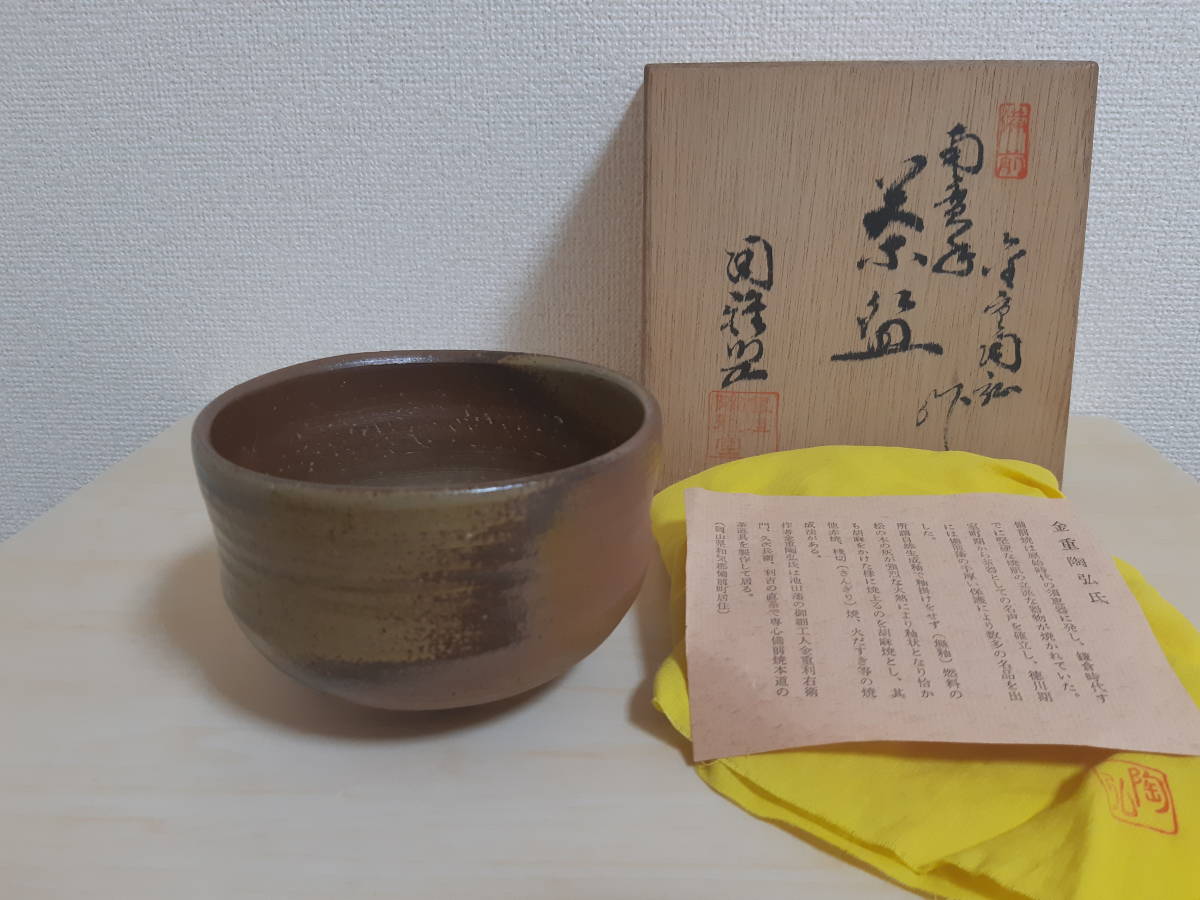 備前
茶盌
金重陶弘
作
金重陶弘氏
備前焼は原始時代の須恵器に発し、鎌倉時代す
でに堅硬な焼肌の立派な器物が焼かれていた。
室町期から茶器としての名声を確立し、徳川期
には備前藩の手厚い保護により数多の名品を出
した。
所謂自然生成釉で釉掛けをせず（無釉）燃料の
松の木の灰が強烈な火熱により釉状となり恰か
も胡麻をかけた様に焼上るのを胡麻焼とし、其
他赤焼、棧切（さんぎり）焼、火だすき等の焼
成法がある。
作者金重陶弘氏は池田藩の御細工人金重利右衛
門、久次兵衛、利吉の直系で専心備前焼本道の
茶道具を製作して居る。
（岡山県和気郡備前町居住）
陶弘